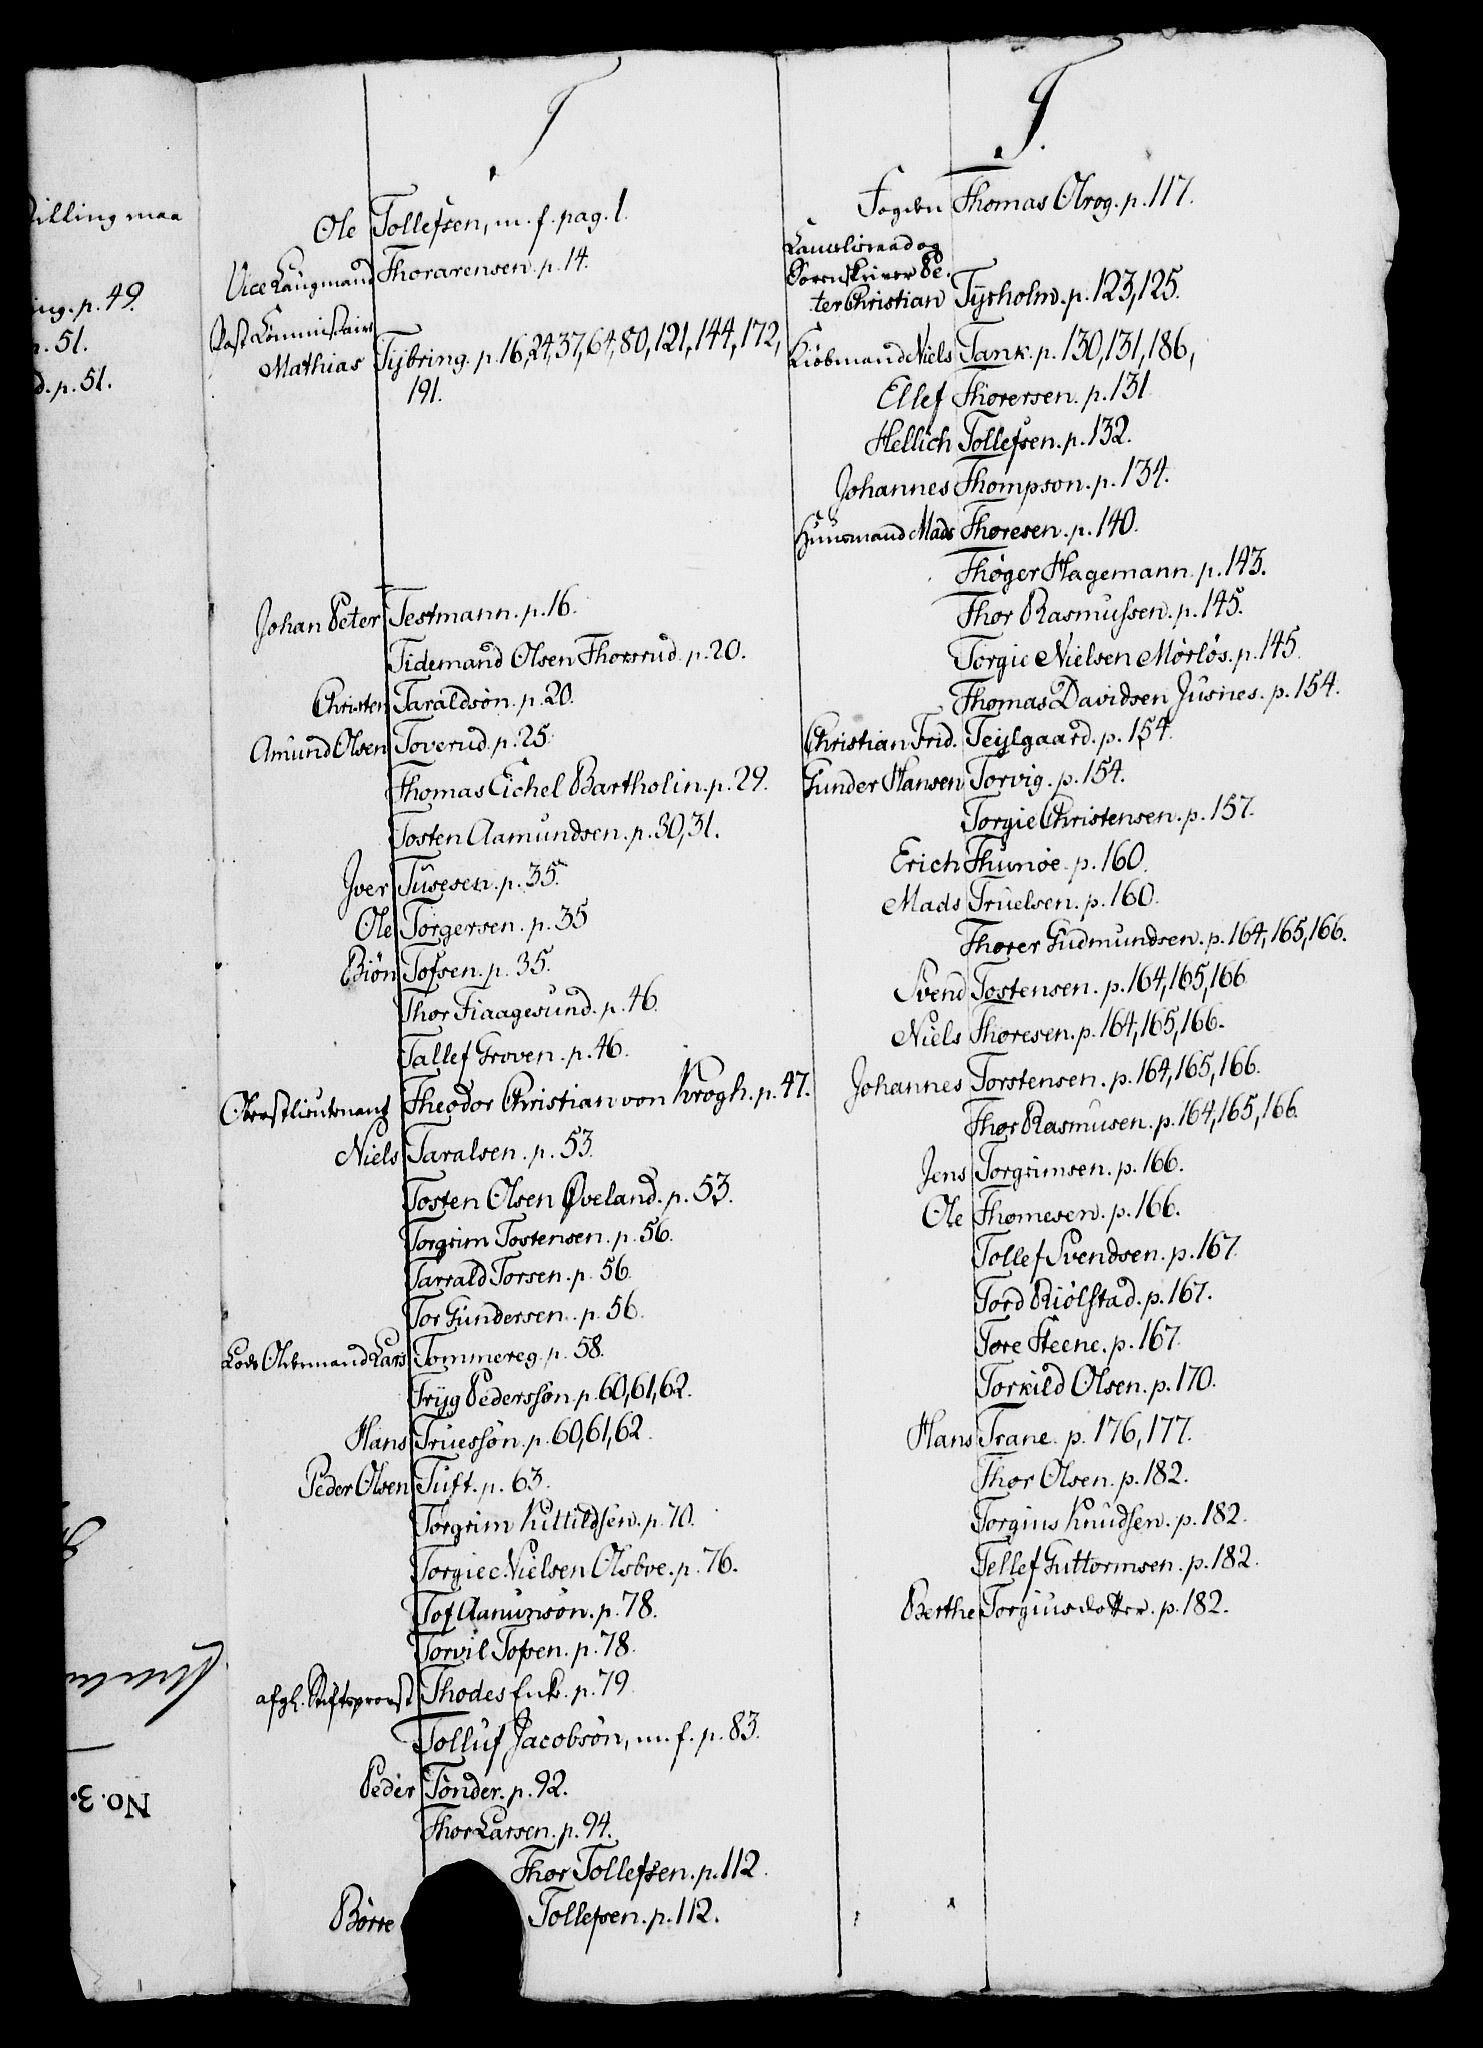 illing maa
ing. p. 49.
p. 51.
d. p. 51.
No. 3.
T
Ole Tollefsen, m. f. pag. 1.
Vice Laugmand Thorarensen. p. 14.
Post Commissair
Mathias Tybring. p. 16, 24, 37, 64, 80, 121, 144, 172,
191.
Johan Peter Testmann. p. 16.
Tidemand Olsen Thorsrud. p. 20.
Christen Taraldsøn. p. 20.
Amund Olsen Toverud. p. 25.
Thomas Eichel Bartholin. p. 29.
Tosten Aamundsen. p. 30, 31.
Iver Tusesen. p. 35.
Ole Torgersen. p. 35
Biøn Tofsen. p. 35.
Thor Fiaagesund. p. 46.
Tallef Groven. p. 46.
Obrestlieutenant Theodor Christian von Krogh. p. 47.
Niels Taralsen. p. 53.
Tosten Olsen Qveland. p. 53.
Torgrim Tostensen. p. 56.
Tarrald Torsen. p. 56.
Tor Gundersen. p. 56.
Lods Oldermand Lars Tommereg. p. 58.
Tryg Pederssøn. p. 60, 61, 62.
Hans Truessøn. p. 60, 61, 62.
Peder Olsen Tuft. p. 63.
Torgrim Kittildsen. p. 70.
Torgie Nielsen Olsboe. p. 76.
Tof Aanunsøn. p. 78.
Torvil Tofsen. p. 78.
afgl. Stiftsprovst Thodes Enk. p. 79.
Tolluf Jacobsøn, m. f. p. 83.
Peder Tønder. p. 92.
Thor Larsen. p. 94.
Thor Tollefsen. p. 112.
Børre Tollefsen. p. 112.
T.
Fogden Thomas Olrog. p. 117.
Cancelieraad og
Sorenskriver Pe-
ter Christian Tyrholm. p. 123, 125.
Kiøbmand Niels Tank. p. 130, 131, 186,
Ellef Thorersen. p. 131.
Hellich Tollefsen. p. 132.
Johannes Thompson. p. 134.
Huusmand Mads Thoresen. p. 140.
Thøger Hagemann. p. 143.
Thor Rasmussen. p. 145.
Torgie Nielsen Mørløs. p. 145.
Thomas Davidsen Jusnes. p. 154.
Christian Frid. Teylgaard. p. 154.
Gunder Hansen Torvig. p. 154.
Torgie Christensen. p. 157.
Erich Thunøe. p. 160.
Mads Truelsen. p. 160.
Thorer Gudmundsen. p. 164, 165, 166.
Svend Tostensen. p. 164, 165, 166.
Niels Thoresen. p. 164, 165, 166.
Johannes Torstensen. p. 164, 165, 166.
Thor Rasmusen. p. 164, 165, 166.
Jens Torgrimsen. p. 166.
Ole Thomesen. p. 166.
Tollef Svendsen. p. 167.
Tord Riølstad. p. 167.
Tore Steene. p. 167.
Torkild Olsen. p. 170.
Hans Trane. p. 176, 177.
Thor Olsen. p. 182.
Torgius Knudsen. p. 182.
Tellef Guttormsen. p. 182.
Berthe Torgiusdotter. p. 182.